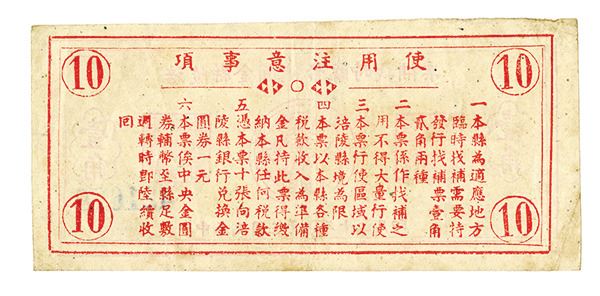 使用注意事項
10
10
一本縣為適應地方
臨時找補需要特
發行找補票壹角
貳角兩種
二本票係作找補之
用不得大量行使
三本票行使區域以
涪陵縣境為限
四本票以本縣各種
稅款收入為準備
金凡持此票得繳
納本縣任何稅款
五憑本票十張向涪
陵縣銀行兌換金
圓券一元
六本票俟中央金圓
券輔幣至縣足數
週轉時即陸續收
回
10
10